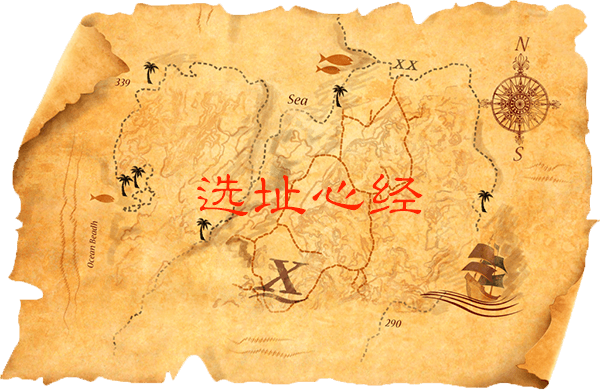 N
XX
339
Sea
选址心经
S
Ocean Beadh
X
290